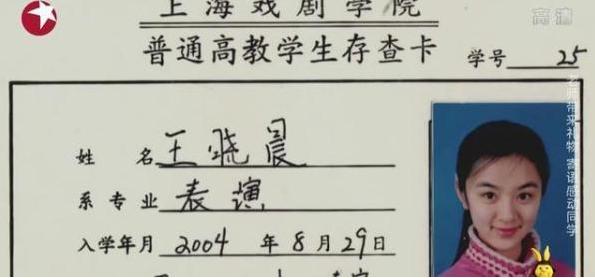 上海戏剧学院
高清
普通高教学生存查卡
学号 25
姓名 王晓晨
系专业 表演
入学年月 2004年8月29日
老师带来礼物 寄语感动同学